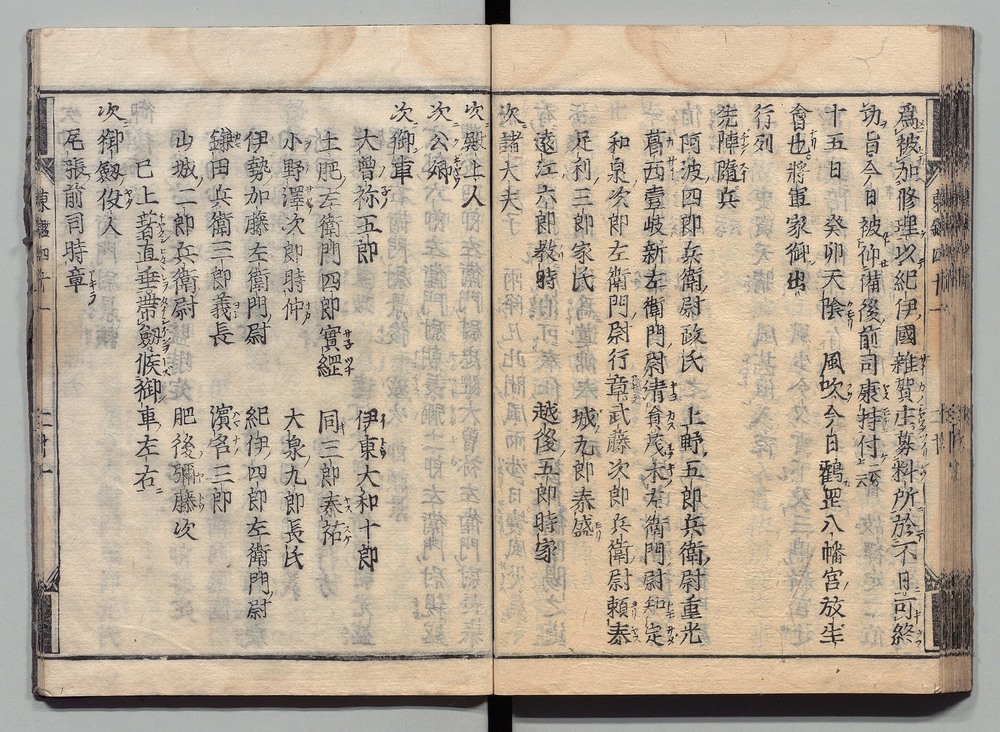 爲被加修理以紀伊國雜賀庄募料所於不日可終
功旨今日被仰備後前司康持付
十五日 癸卯天陰 風吹今日鶴岡八幡宮放生
會也將軍家御出
行列
先陣隨兵
阿波四郎兵衛尉政氏 上野五郎兵衛尉重光
葛西壹岐新左衛門尉清員茂木左衛門尉知定
和泉次郎左衛門尉行章武藤次郎兵衛尉頼泰
足利三郎家氏 城九郎泰盛
遠江六郎教時 越後五郎時家
次諸大夫
次殿上人
次公卿
次御車
大曽祢五郎 伊東大和十郎
土肥左衛門四郎實綱 同三郎泰祐
小野澤次郎時仲 大泉九郎長氏
伊勢加藤左衛門尉 紀伊四郎左衛門尉
鎌田兵衛三郎義長 濱名三郎
山城二郎兵衛尉 肥後彌藤次
已上著直垂帶劔候御車左右
次御劔役人
尾張前司時章